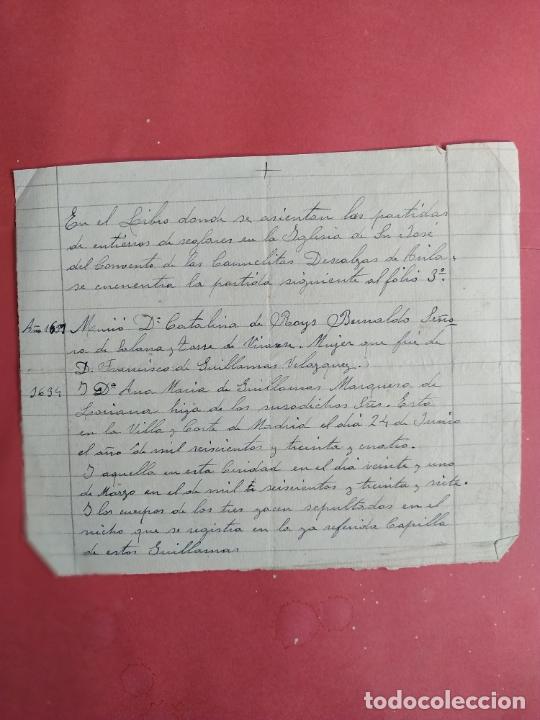 +
En el Libro donde se asientan las partidas
de entierros de seglares en la Iglesia de Sn José
del Convento de las Carmelitas Descalzas de Avila,
se encuentra la partida siguiente al fólio 3º.
Año 1637 Murió Dª Catalina de Roys Bernaldo Seño
ra de Torre de Mujer que fué de
D. Francisco de Guillamas Velazquez.
1634 I Dª Ana Maria de Guillamas Marquesa de
Loriana hija de los susodichos Sres. Esta
en la Villa y Corte de Madrid el dia 24 de Junio
el año de mil seiscientos y treinta y cuatro.
I aquella en esta Ciudad en el dia veinte y uno
de Marzo en el de mil seiscientos y treinta y siete.
I los cuerpos de los tres yacen sepultados en el
nicho que se registra en la ya referida Capilla
de estos Guillamas
todocoleccion.net